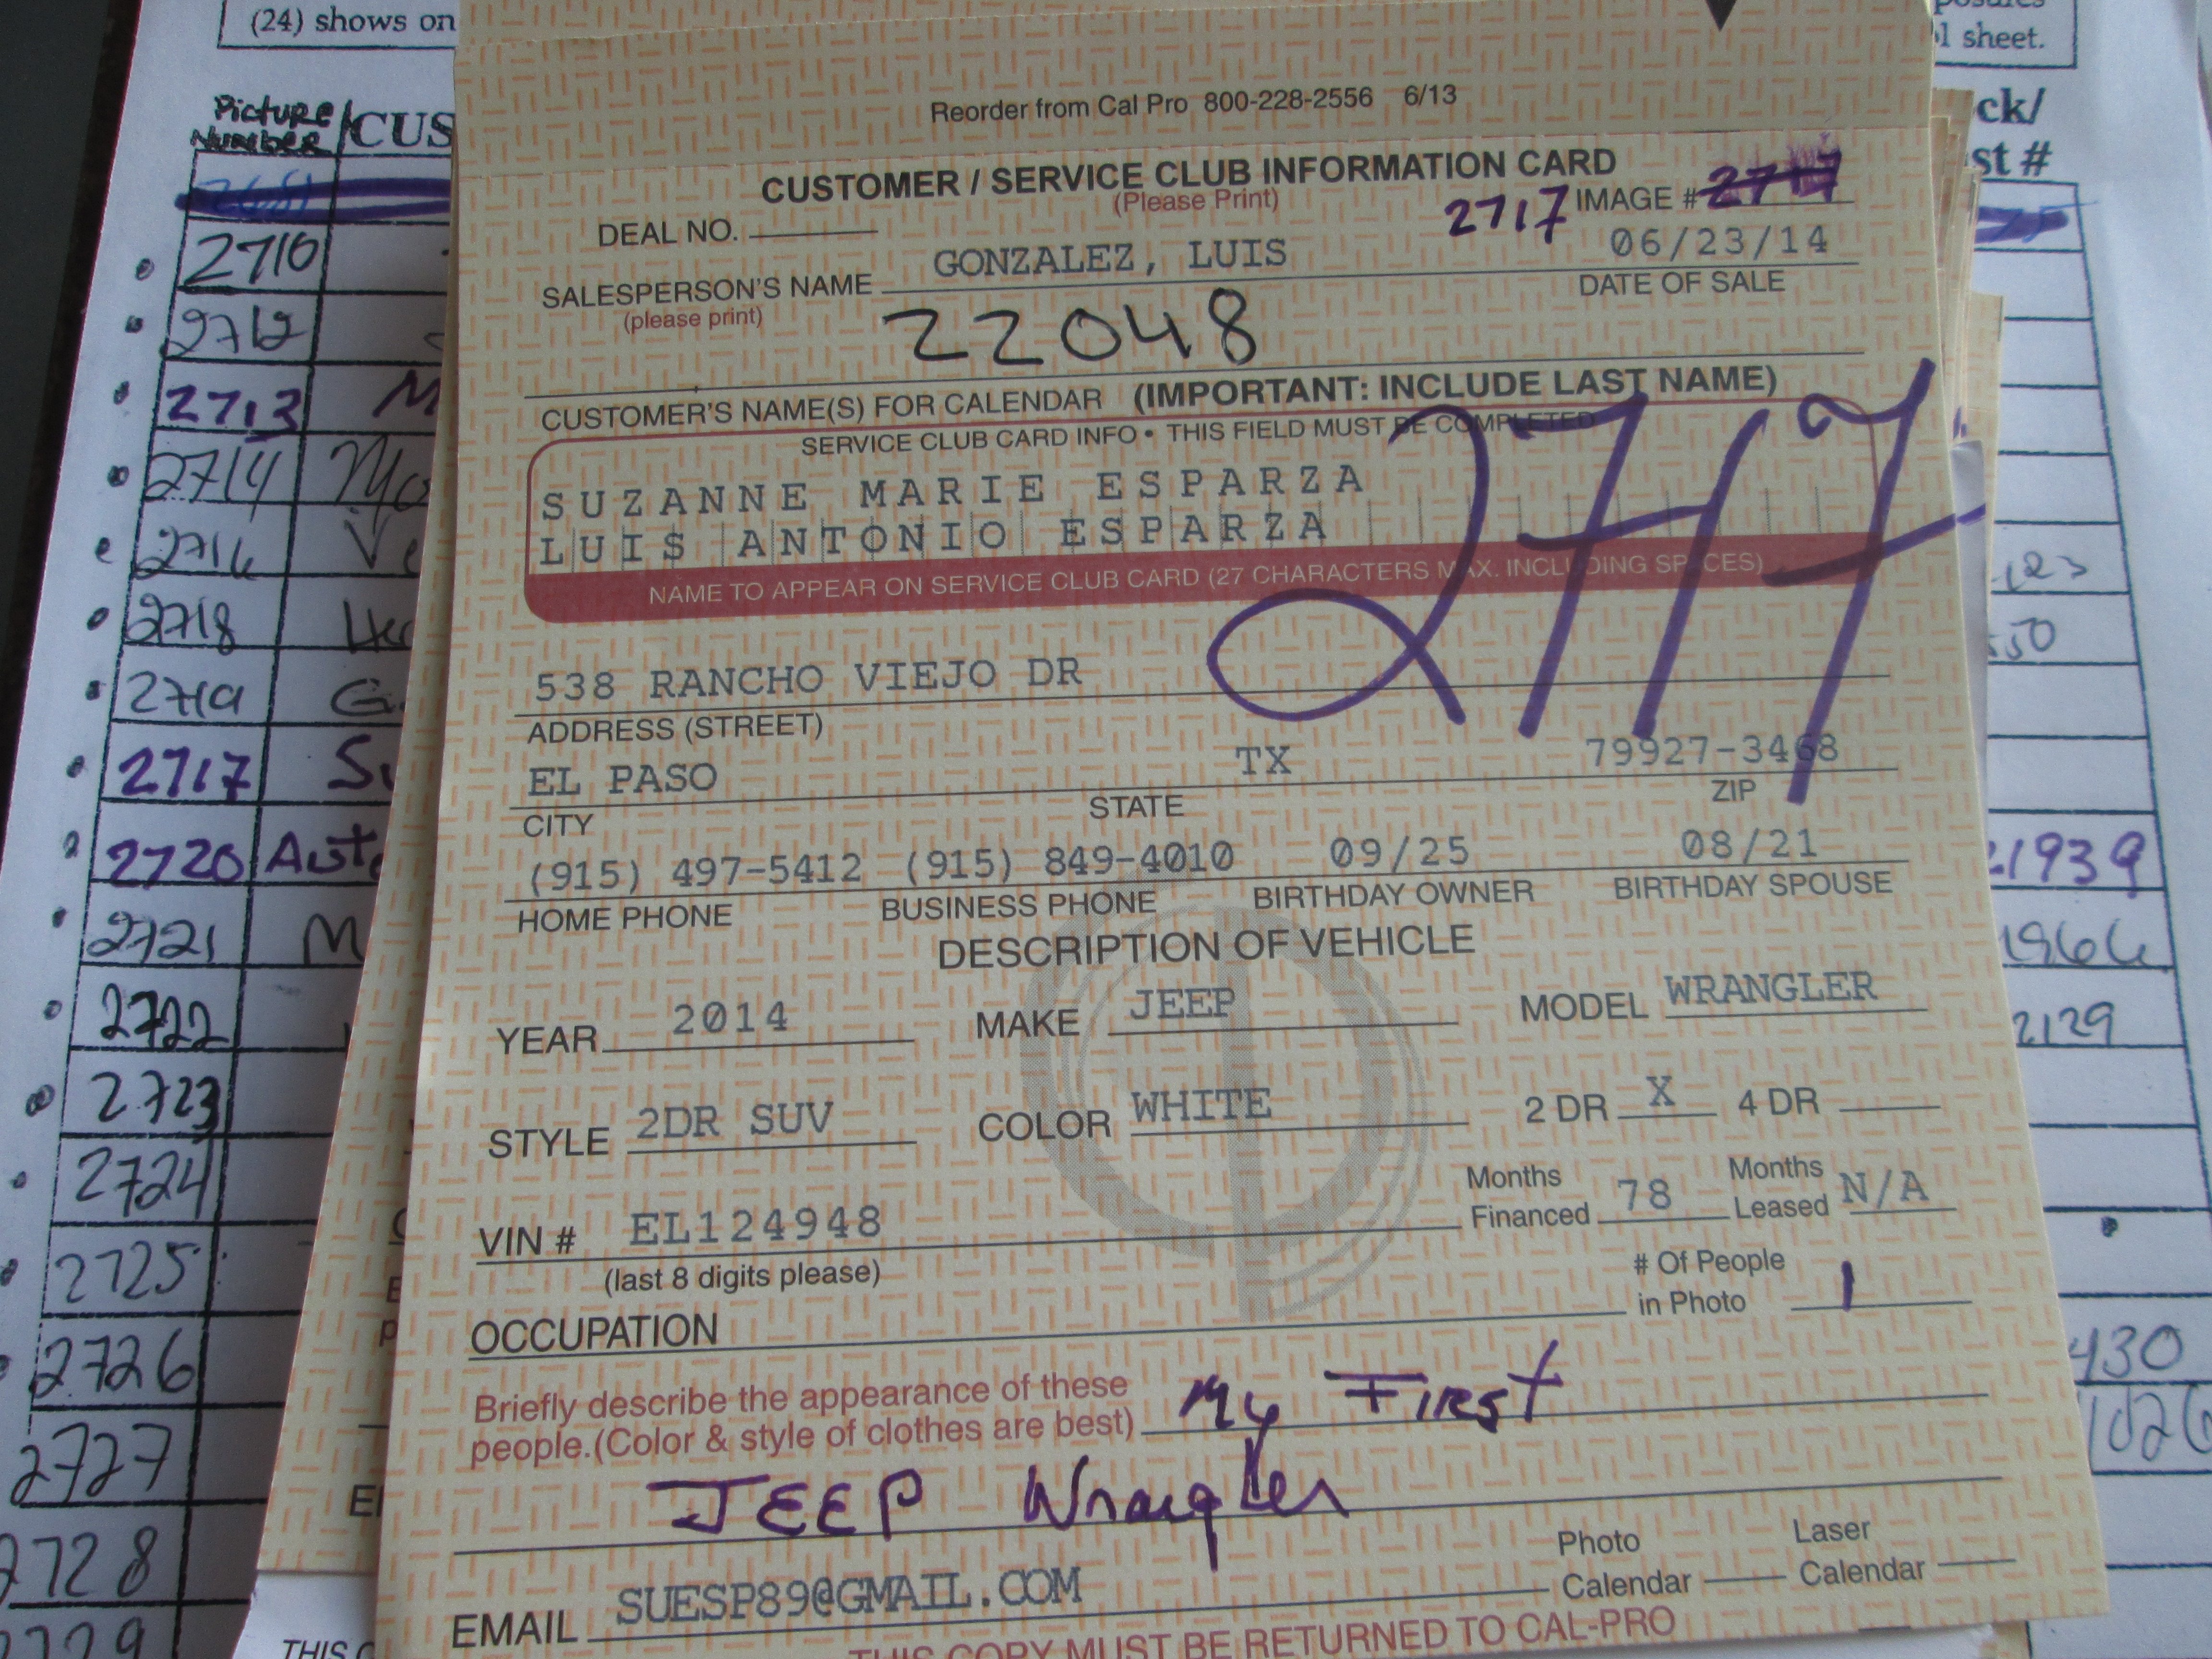 (24) shows on
l sheet.
Picture
Number
CUS
ck/
st #
2710
2712
2713 M
2714
2716 Ve
2718
2719 G
2717 Su
2720 Auto
2721 M
2722
2723
2724
2725
2726
2727
2728
2729
Reorder from Cal Pro 800-228-2556 6/13
CUSTOMER / SERVICE CLUB INFORMATION CARD
(Please Print)
2717 IMAGE # 2717
DEAL NO.
SALESPERSON'S NAME GONZALEZ, LUIS 06/23/14
(please print) DATE OF SALE
22048
CUSTOMER'S NAME(S) FOR CALENDAR (IMPORTANT: INCLUDE LAST NAME)
SERVICE CLUB CARD INFO • THIS FIELD MUST BE COMPLETED
2717
SUZANNE MARIE ESPARZA
LUIS ANTONIO ESPARZA
NAME TO APPEAR ON SERVICE CLUB CARD (27 CHARACTERS MAX. INCLUDING SPACES)
538 RANCHO VIEJO DR
ADDRESS (STREET)
EL PASO TX 79927-3468
CITY STATE ZIP
(915) 497-5412 (915) 849-4010 09/25 08/21
HOME PHONE BUSINESS PHONE BIRTHDAY OWNER BIRTHDAY SPOUSE
DESCRIPTION OF VEHICLE
YEAR 2014 MAKE JEEP MODEL WRANGLER
STYLE 2DR SUV COLOR WHITE 2 DR X 4 DR
VIN # EL124948 Months Financed 78 Months Leased N/A
(last 8 digits please)
# Of People in Photo 1
OCCUPATION
Briefly describe the appearance of these
people.(Color & style of clothes are best) My First
JEEP Wrangler
EMAIL SUESP89@GMAIL.COM Photo Calendar Laser Calendar
THIS COPY MUST BE RETURNED TO CAL-PRO
THIS C
50
21939
1966
2129
430